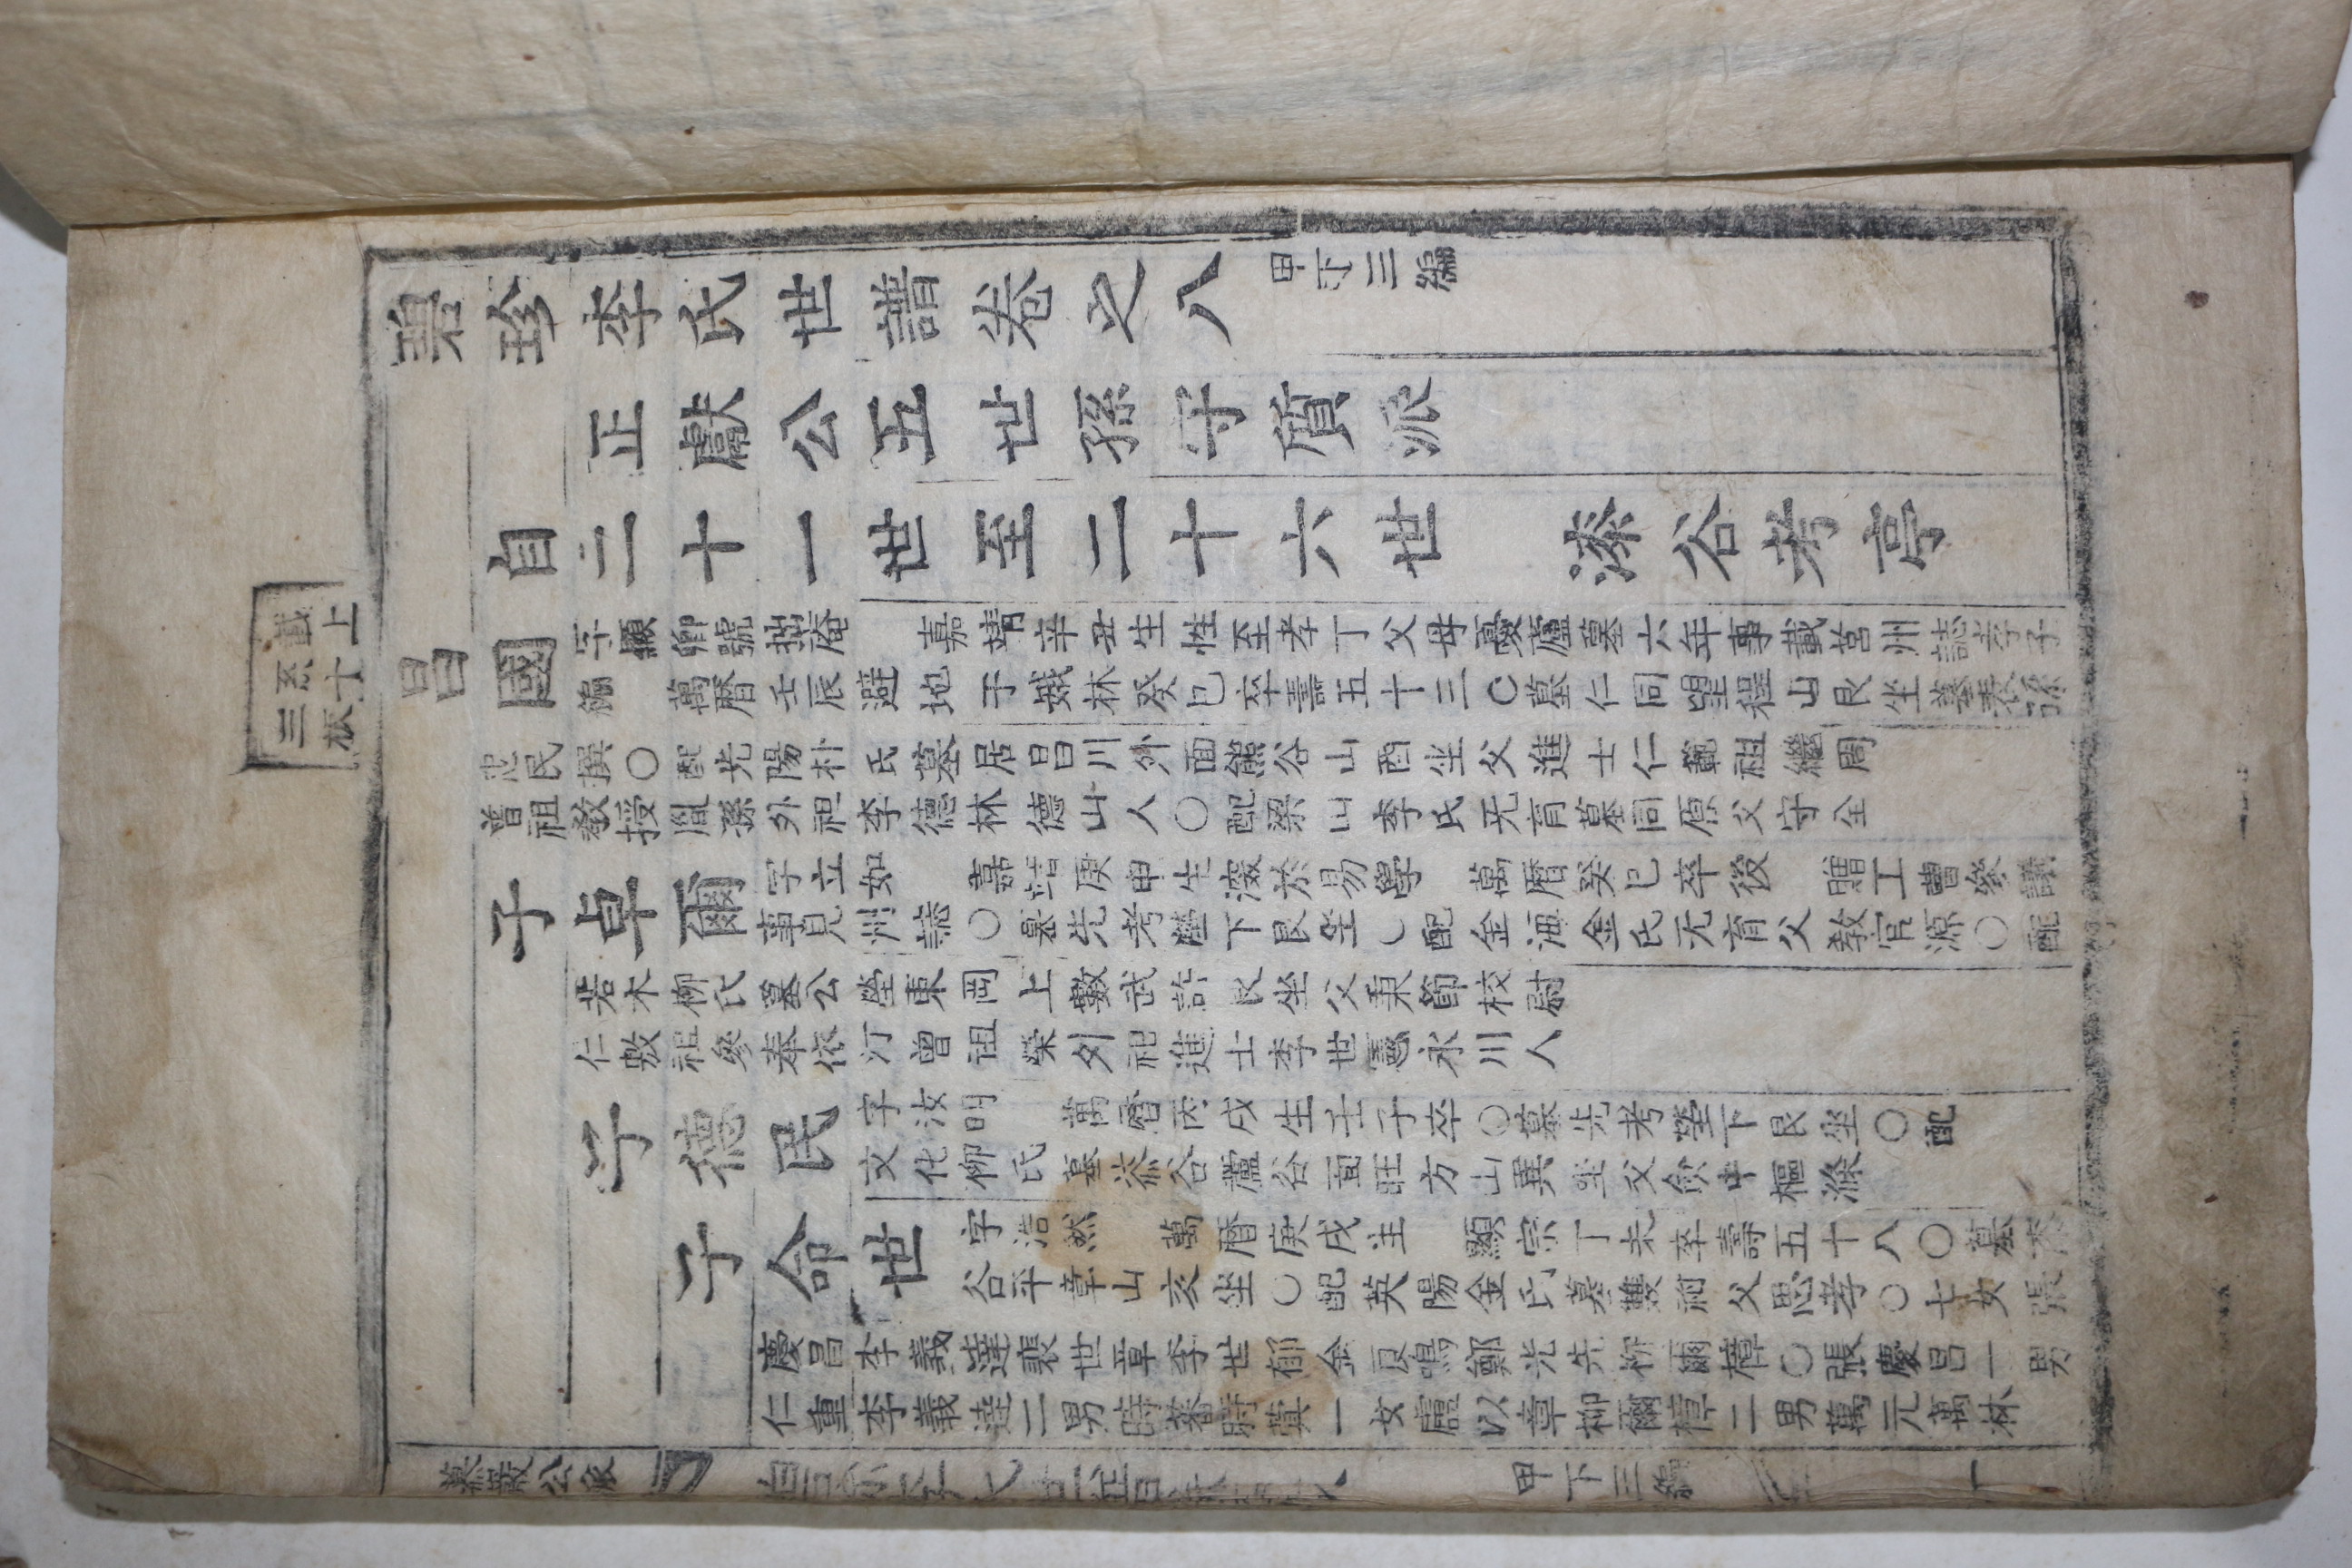 載上
系十
三板
碧珍李氏世譜卷之八 甲下三編
正獻公五世孫守質派
自二十一世至二十六世 漆谷考亭
昌國
字顯卿號拙庵 嘉靖辛丑生性至孝丁父母憂廬墓六年事載莒州誌孝子
編 萬曆壬辰避地于娥林癸巳卒壽五十三○墓仁同望程山艮坐墓表孫
忠民撰○配光陽朴氏墓居昌川外面熊谷山酉坐父進士仁範祖繼周
曾祖敎授胤孫外祖李德林德山人○配梁山李氏无育墓同原父守全
子卓爾
字立如 嘉靖庚申生深於易學 萬曆癸巳卒後 贈工曹參議
事見州誌○墓先考塋下艮坐○配金海金氏无育父敎官源○配
若木柳氏墓公塋東岡上數武許艮坐父秉節校尉
仁敷祖參奉依汀曾祖榮外祖進士李世憲永川人
子德民
字汝明 萬曆丙戌生壬子卒○墓先考塋下艮坐○配
文化柳氏墓漆谷蘆谷面旺方山巽坐父僉中樞滌
子命世
字浩然 萬曆庚戌生 顯宗丁未卒壽五十八○墓漆
谷平章山亥坐○配英陽金氏墓雙祔父思孝○七女張
慶昌李義達裵世章李世郁金厦鳴鄭光先柳爾樟○張慶昌一男
仁重李義達二男時蕃時蓂一女盧以章柳爾樟二男萬元萬林
慕巖公派 甲下三編 一